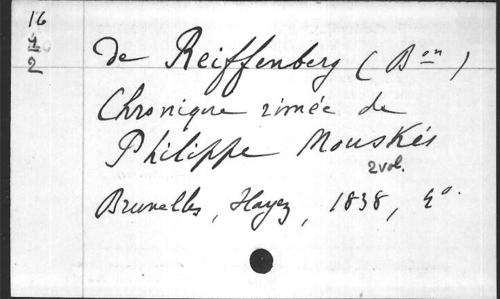 16
4
2
de Reiffenberg (Bon)
Chronique rimée de
Philippe Mouskés
2 vol.
Bruxelles, Hayez, 1838, 4o.